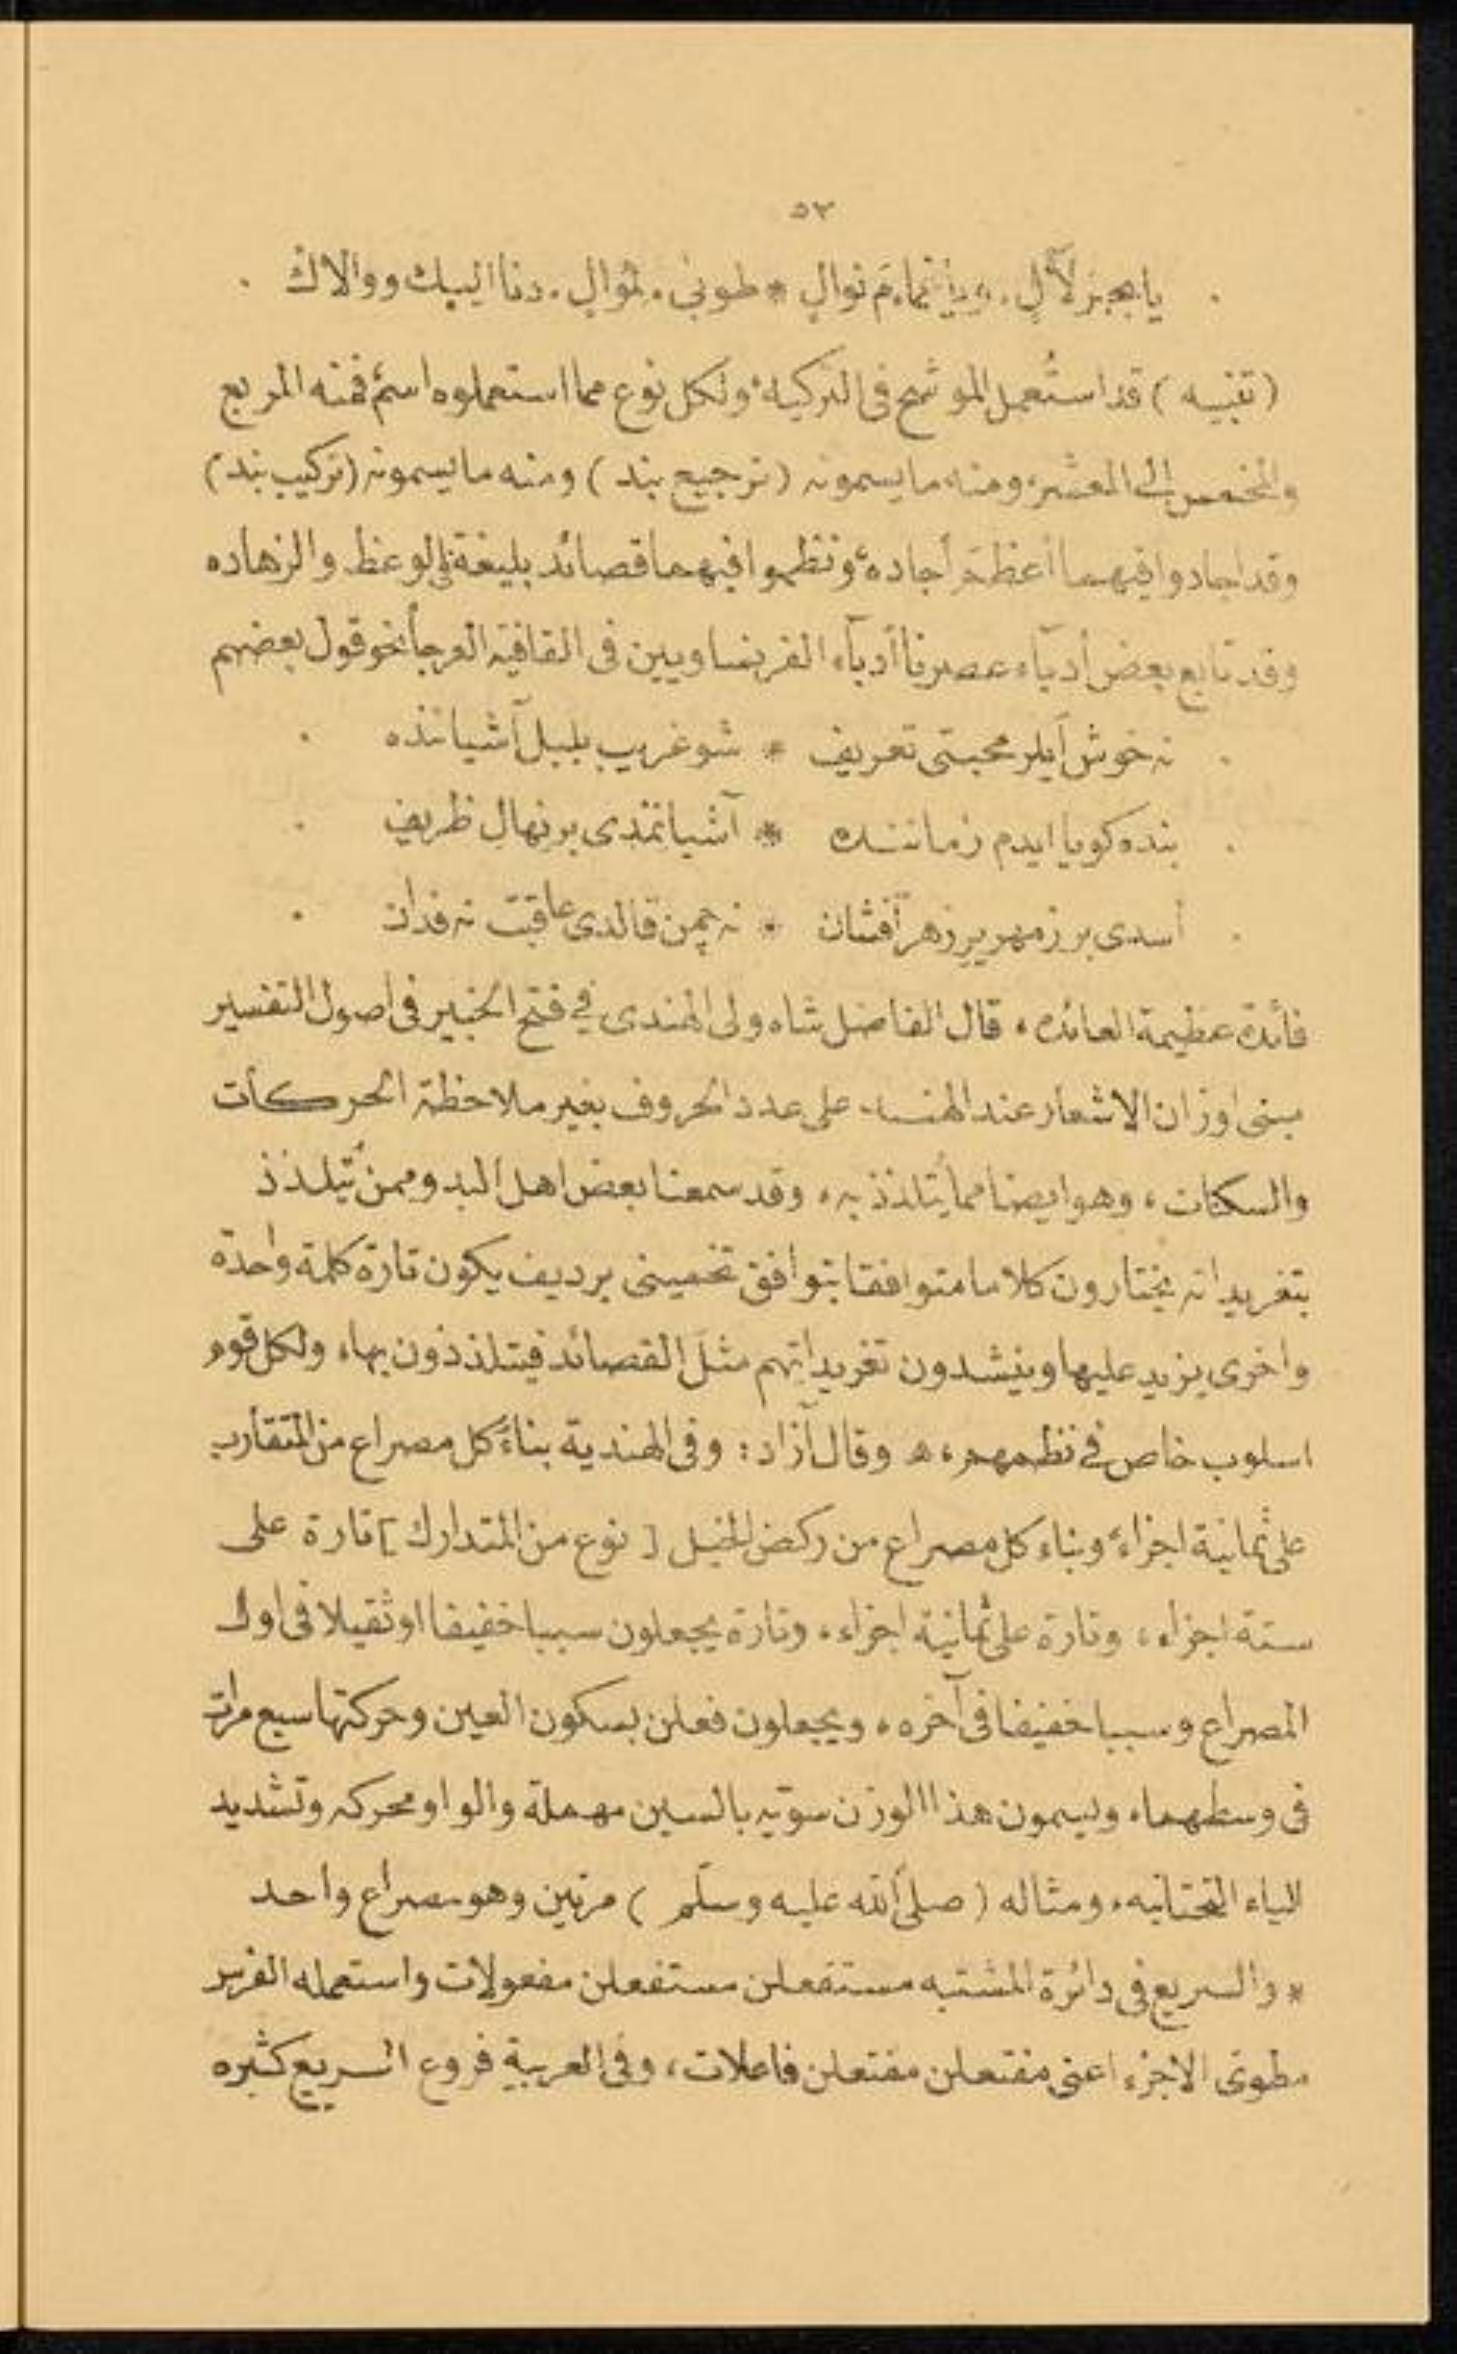 ٥٣
(تنبيه) قد استُعمل الموشح فى التركية ولكل نوع مما استعملوه اسم فمنه المربع
والمخمس إلى المعشر، ومنه ما يسمونه (ترجيع بند) ومنه ما يسمونه (تركيب بند)
وقد اجادوا فيهما أعظمَ أجاده، ونظموا فيهما قصائد بليغة فى الوعظ والزهاده
وقد تابع بعض أدبآء عصرنا أدبآء الفرنساويين فى القافية العرجآ نحو قول بعضهم
نه خوش ايلر محبتى تعريف * شو غريب بلبل آشيانده
بنده كويا ايدم زماننده * آشيانندى بر نهال ظريف
أسدى بر زمهرير زهر افشان * نه چمن قالدى عاقبت نه فدان
فائدة عظيمة العائده، قال الفاضل شاه ولى الهندى في فتح الخبير فى اصول التفسير
مبنى اوزان الاشعار عند الهند على عدد الحروف بغير ملاحظة الحركات
والسكنات، وهو ايضا مما يُتلذذ به، وقد سمعنا بعض اهل البدو ممن يُتلذذ
بتغريداته يختارون كلاما متوافقا بتوافق تخمينى برديف يكون تارة كلمة واحدة
واخرى يزيد عليها وينشدون تغريداتهم مثلَ القصائد فيتلذذون بها، ولكل قوم
اسلوب خاص في نظمهم، ه وقال آزاد: وفى الهندية بناءُ كل مصراع من المتقارب
على ثمانية اجزاء، وبناء كل مصراع من ركض الخيل [نوع من المتدارك] تارة على
ستة اجزاء، وتارة على ثمانية اجزاء، وتارة يجعلون سببا خفيفا او ثقيلا فى اول
المصراع وسببا خفيفا فى آخره، ويجعلون فعلن بسكون العين وحركتها سبع مرات
فى وسطهما، ويسمون هذا الوزن سويّه بالسين مهملة والواو محركه وتشديد
الياء التحتانيه، ومثاله (صلى الله عليه وسلّم) مرتين وهو مصراع واحد
* والسريع فى دائرة المشتبه مستفعلن مستفعلن مفعولات واستعمله الفرس
مطوىّ الاجزء اعنى مفتعلن مفتعلن فاعلات، وفى العربية فروع السريع كثيره